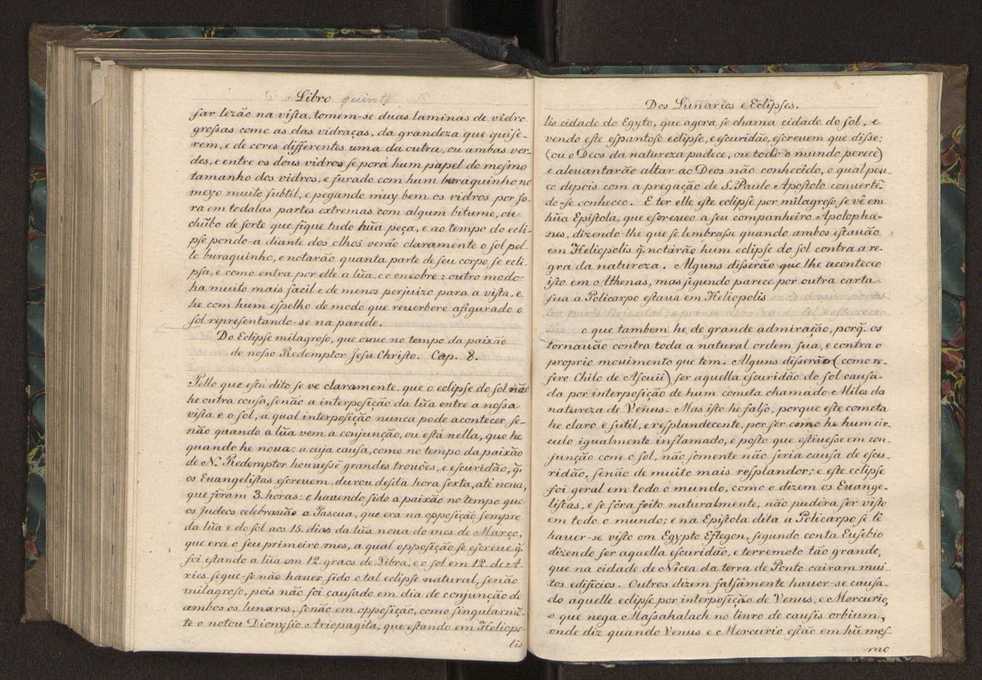 Libro quinto
sar lezão na vista, tomem-se duas laminas de vidro
grossas como as das vidraças, da grandeza que quise-
rem, e de cores differentes uma da outra, ou ambas ver-
des, e entre os dous vidros se porá hum papel do mesmo
tamanho dos vidros, e furado com hum buraquinho no
meyo muito subtil, e pegando muy bem os vidros por fo-
ra em todalas partes extremas com algum bitume, ou
chũbo de sorte que fique tudo hũa peça, e ao tempo do ecli-
pse pondo-a diante dos olhos verão claramente o sol pel-
le buraquinho, e notarão quanta parte de seu corpo se ecli-
psa, e como entra por elle a lũa, e o encobre: outro modo
ha muito mais facil e de menos perjuizo para a vista, e
he com hum espelho de modo que reuerbere afigurado o
sol representando-se na parede.
Do Eclipse milagroso, que ouue no tempo da paixão
de nosso Redemptor Jesu Christo. Cap. 8.
Pello que está dito se ve claramente, que o eclipse do sol não
he outra cousa, senão a interposição da lũa entre a nossa
vista e o sol, a qual interposição nunca pode acontecer, se-
não quando a lũa vem a conjunção, ou está nella, que he
quando he noua: a cuja causa, como no tempo da paixão
de N. Redemptor houuesse grandes trouões, e escuridão, q̃.
os Euangelistas escreuem, durou desda hora sexta, até nona,
que foram 3. horas: e hauendo sido a paixão no tempo que
os judeos celebrauão a Pascua, que era na opposição sempre
da lũa e do sol aos 15. dias da lũa noua do mes de Março,
que era o seu primeiro mes, a qual opposição se escreue q̃.
foi estando a lũa em 12. graos de Libra, e o sol em 12. de A-
ries, segue-se não hauer sido o tal eclipse natural, senão
milagroso, pois não foi causado em dia de conjunção de
ambos os lunares, senão em opposição, como singularmẽ-
te o notou Dionysio Ariopagita, que estando em Heliopo-
lis
Dos Lunarios e Eclipses.
lis cidade do Egyto, que agora se chama cidade do sol, e
vendo este espantoso eclipse, e escuridão, escreuem que disse:
(ou o Deos da natureza padece, ou todo o mundo perece)
e aleuantarão altar ao Deos não conhecido, o qual pou-
co depois com a pregação de S. Paulo Apostolo conuertẽ-
do-se conheceo. E ter elle este eclipse por milagroso, se vê em
hũa Epistola, que escreueo a seu companheiro Apolopha-
nes, dizendo-lhe que se lembrasse quando ambos estauão
em Heliopolis q̃. notárão hum eclipse do sol contra a re-
gra da natureza. Alguns disserão que lhe aconteceo
isto em Athenas, mas segundo parece por outra carta
sua a Policarpo estaua em Heliopolis
o que tambem he de grande admiração, porq̃. os
tornauão contra toda a natural ordem sua, e contra o
proprio mouimento que tem. Alguns disserão (como re-
fere Chilo de Ascuii) ser aquella escuridão do sol causa-
da por interposição de hum cometa chamado Milos da
natureza de Venus. Mas isto he falso, porque este cometa
he claro e sutil, e resplandecente, por ser como he hum cir-
culo igualmente inflamado, e posto que estiuesse em con-
junção com o sol, não somente não seria causa de escu-
ridão, senão de muito mais resplandor: e este eclipse
foi geral em todo o mundo, como o dizem os Euange-
listas, e se fóra feito naturalmente, não pudéra ser visto
em todo o mundo; e na Epistola dita a Policarpo se lê
hauer-se visto em Egypto Estegon, segundo conta Eusebio
dizendo ser aquella escuridão, e terremoto tão grande,
que na cidade de Nicea da terra de Ponto cairam mui-
tos edificios. Outros dizem falsamente hauer-se causa-
do aquelle eclipse por interposição de Venus, e Mercurio,
o que nega Massahalach no liuro de causis orbium,
onde diz quando Venus e Mercurio estão em hũ mes-
mo